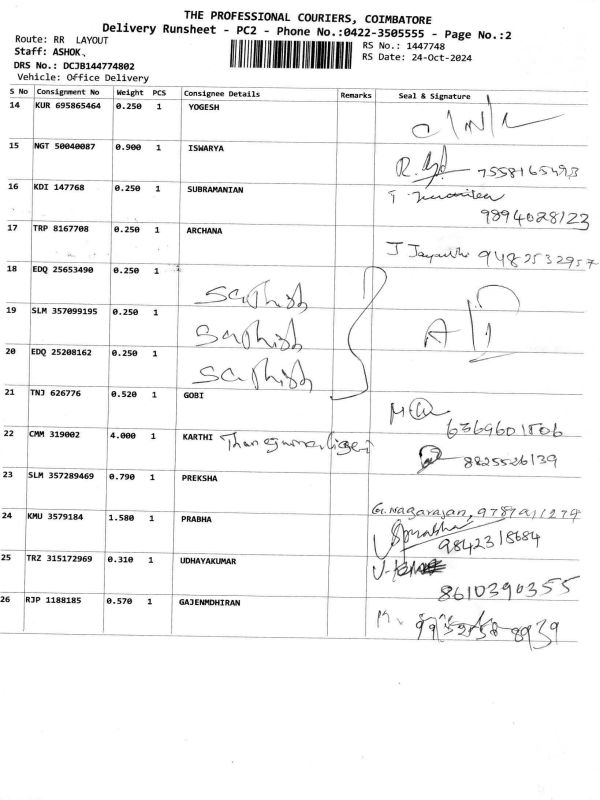 THE PROFESSIONAL COURIERS, COIMBATORE
Delivery Runsheet - PC2 - Phone No.:0422-3505555 - Page No.:2
Route: RR LAYOUT
Staff: ASHOK.
DRS No.: DCJB144774802
Vehicle: Office Delivery
RS No.: 1447748
RS Date: 24-Oct-2024
S No Consignment No Weight PCS Consignee Details Remarks Seal & Signature
14 KUR 695865464 0.250 1 YOGESH
15 NGT 50040087 0.900 1 ISWARYA 7558165493
16 KDI 147768 0.250 1 SUBRAMANIAN 9894028123
17 TRP 8167708 0.250 1 ARCHANA J Jayanthi 9482532957
18 EDQ 25653490 0.250 1 Sathish
19 SLM 357099195 0.250 1 Sathish
20 EDQ 25208162 0.250 1 Sathish
21 TNJ 626776 0.520 1 GOBI 6369601806
22 CMM 319002 4.000 1 KARTHI 8825526139
23 SLM 357289469 0.790 1 PREKSHA G. Nagarajan, 9789911279
24 KMU 3579184 1.580 1 PRABHA Sprabha 9842318684
25 TRZ 315172969 0.310 1 UDHAYAKUMAR 8610390355
26 RJP 1188185 0.570 1 GAJENMDHIRAN M.